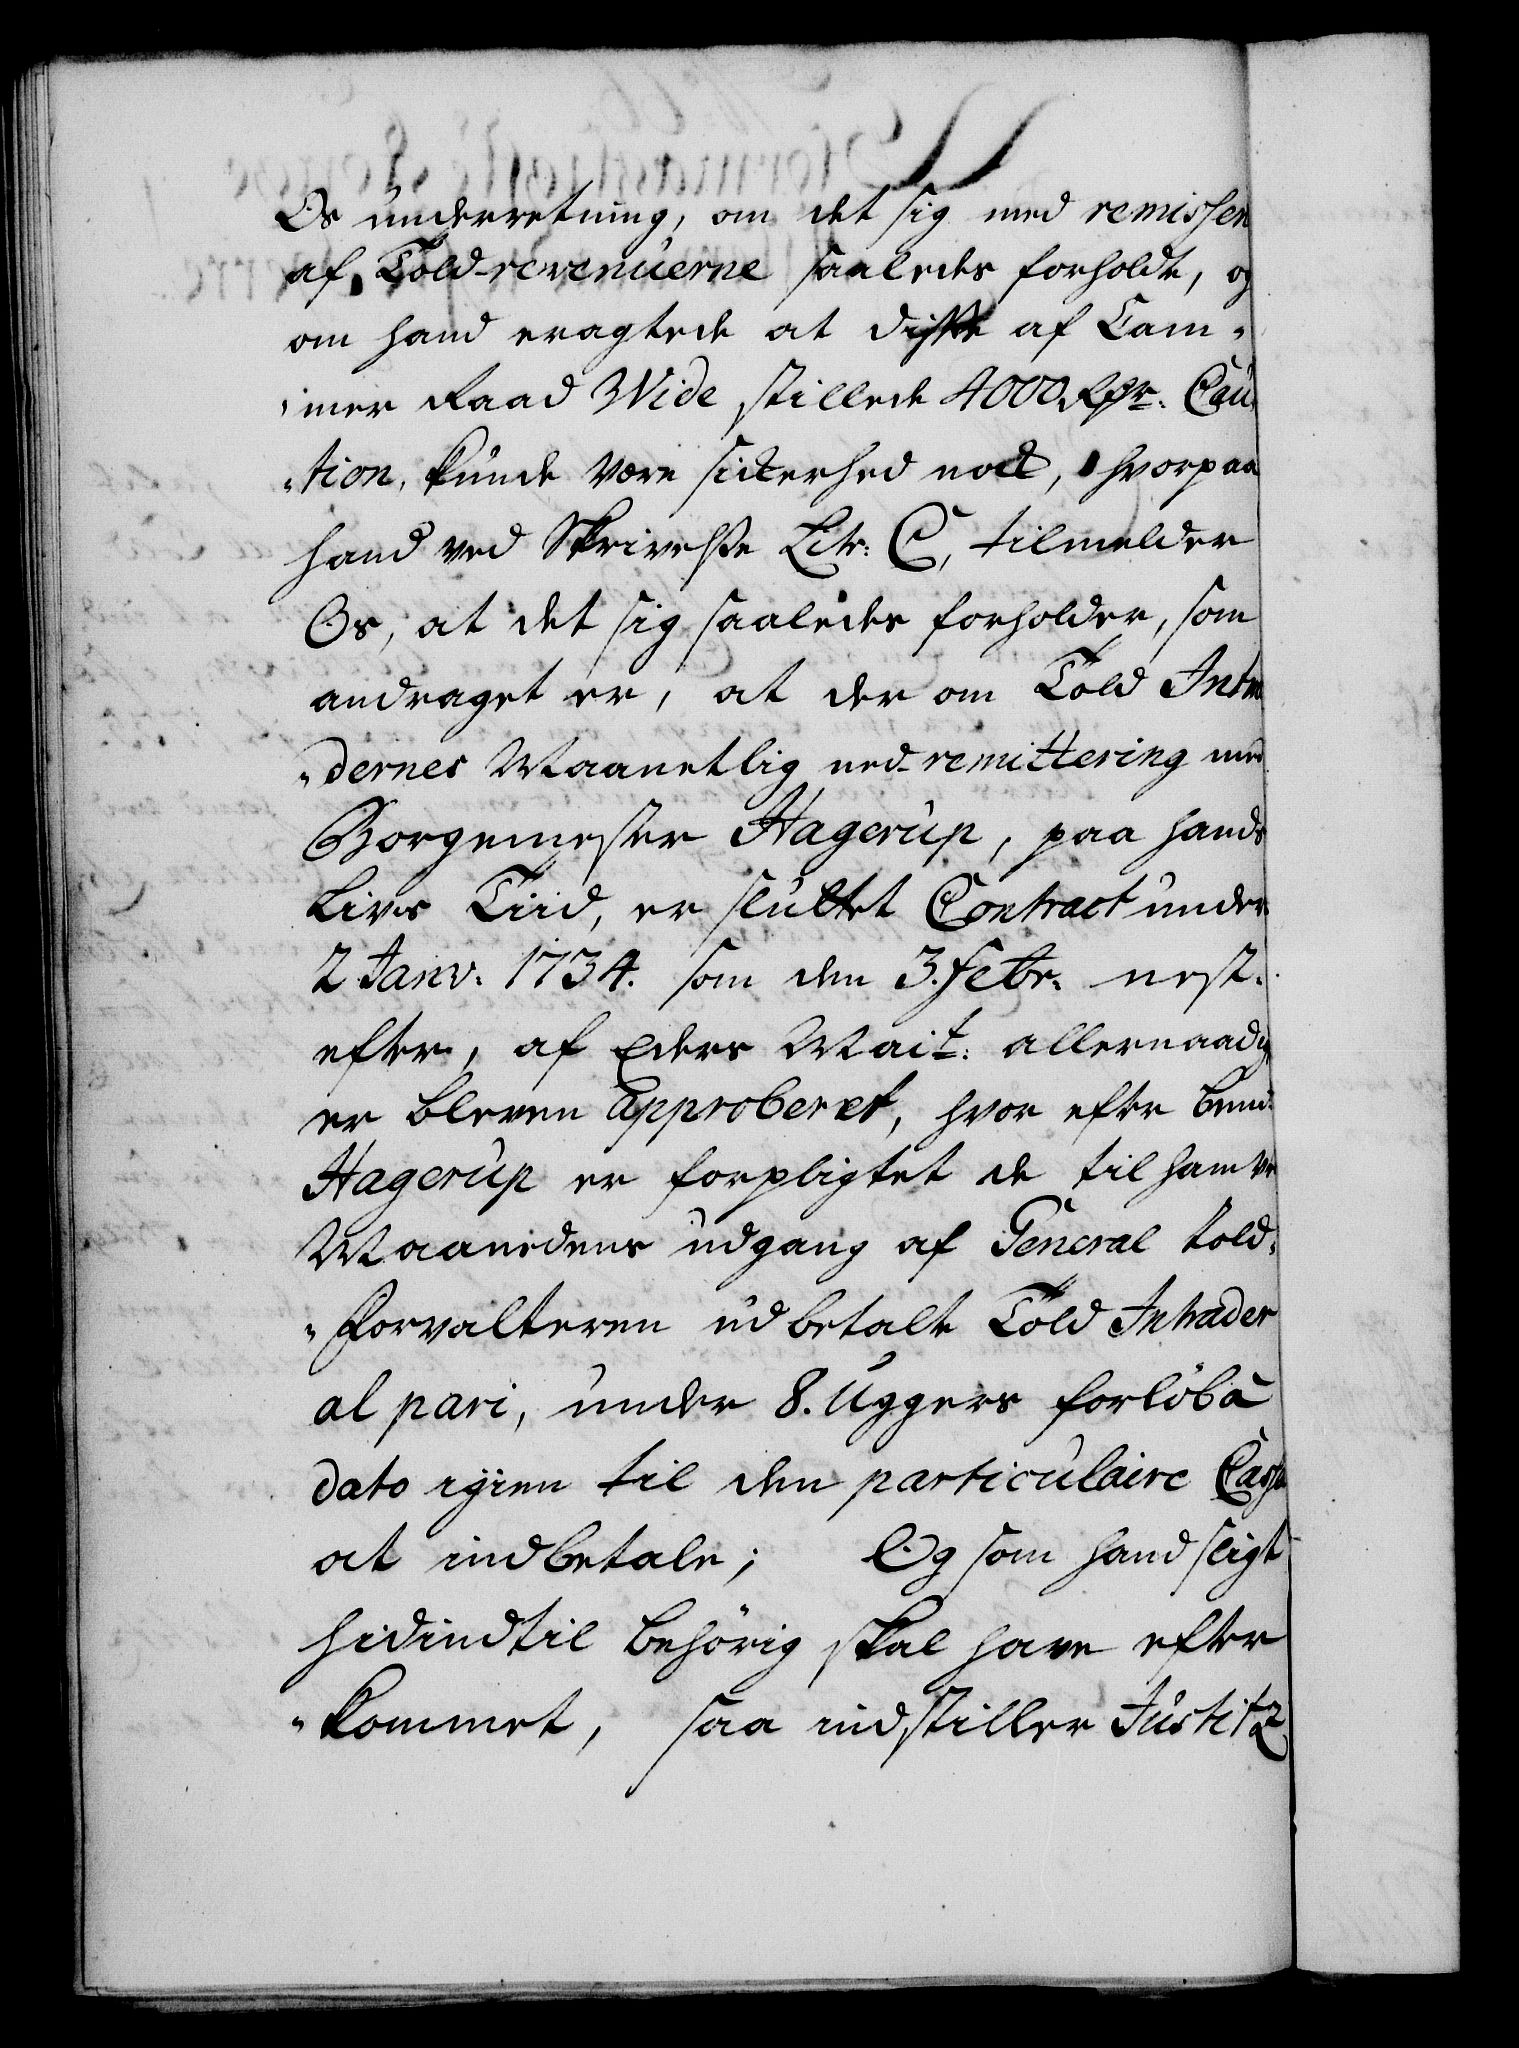 Os underretning, om det sig med remissen
af Told-revenuerne saaledes forholdt, og
om hand eragtede at disse af Cam-
mer Raad Wide stillede 4000 Rdr. Cau-
tion, kunde være sickerhed nock, hvorpaa
hand ved Skrivelse Litr: C, tilmelder
Os, at det sig saaledes forholder, som
andraget er, at der om Told Intra
dernes Maanetlig ned-remittering med
Borgemester Hagerup, paa hands
Livs Tiid, er sluttet Contract under
2 Janv: 1734. som den 3. Febr: nest-
efter, af Eders Mait: allernaadig
er bleven approberet, hvor efter bem:
Hagerup er forpligtet de til ham ved
Maanedens udgang af General told-
forvalteren udbetalte Told Intrader
al pari, under 8. Uggers forløb a
dato igien til den particulaire Cassa
at indbetale; Og som hand sligt
hidindtil behørig skal have efter
kommet, saa indstiller Justitz